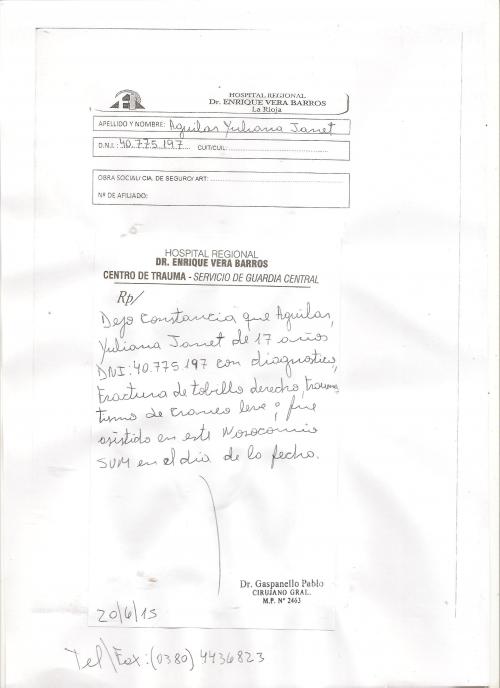 HOSPITAL REGIONAL
Dr. ENRIQUE VERA BARROS
La Rioja
APELLIDO Y NOMBRE: Aguilar Yuliana Janet
D.N.I.: 40.775.197 CUIT/CUIL:
OBRA SOCIAL/ CIA. DE SEGURO/ ART:
Nº DE AFILIADO:
HOSPITAL REGIONAL
DR. ENRIQUE VERA BARROS
CENTRO DE TRAUMA - SERVICIO DE GUARDIA CENTRAL
Rp/
Dejo constancia que Aguilar,
Yuliana Janet de 17 años
DNI: 40.775 197 con diagnostico,
fractura de tobillo derecho, trauma
tismo de craneo leve; fue
asistido en este Nosocomio
SUM en el dia de la fecha.
Dr. Gaspanello Pablo
CIRUJANO GRAL.
M.P. Nº 2463
20/6/15
Tel/Fax: (0380) 4436823